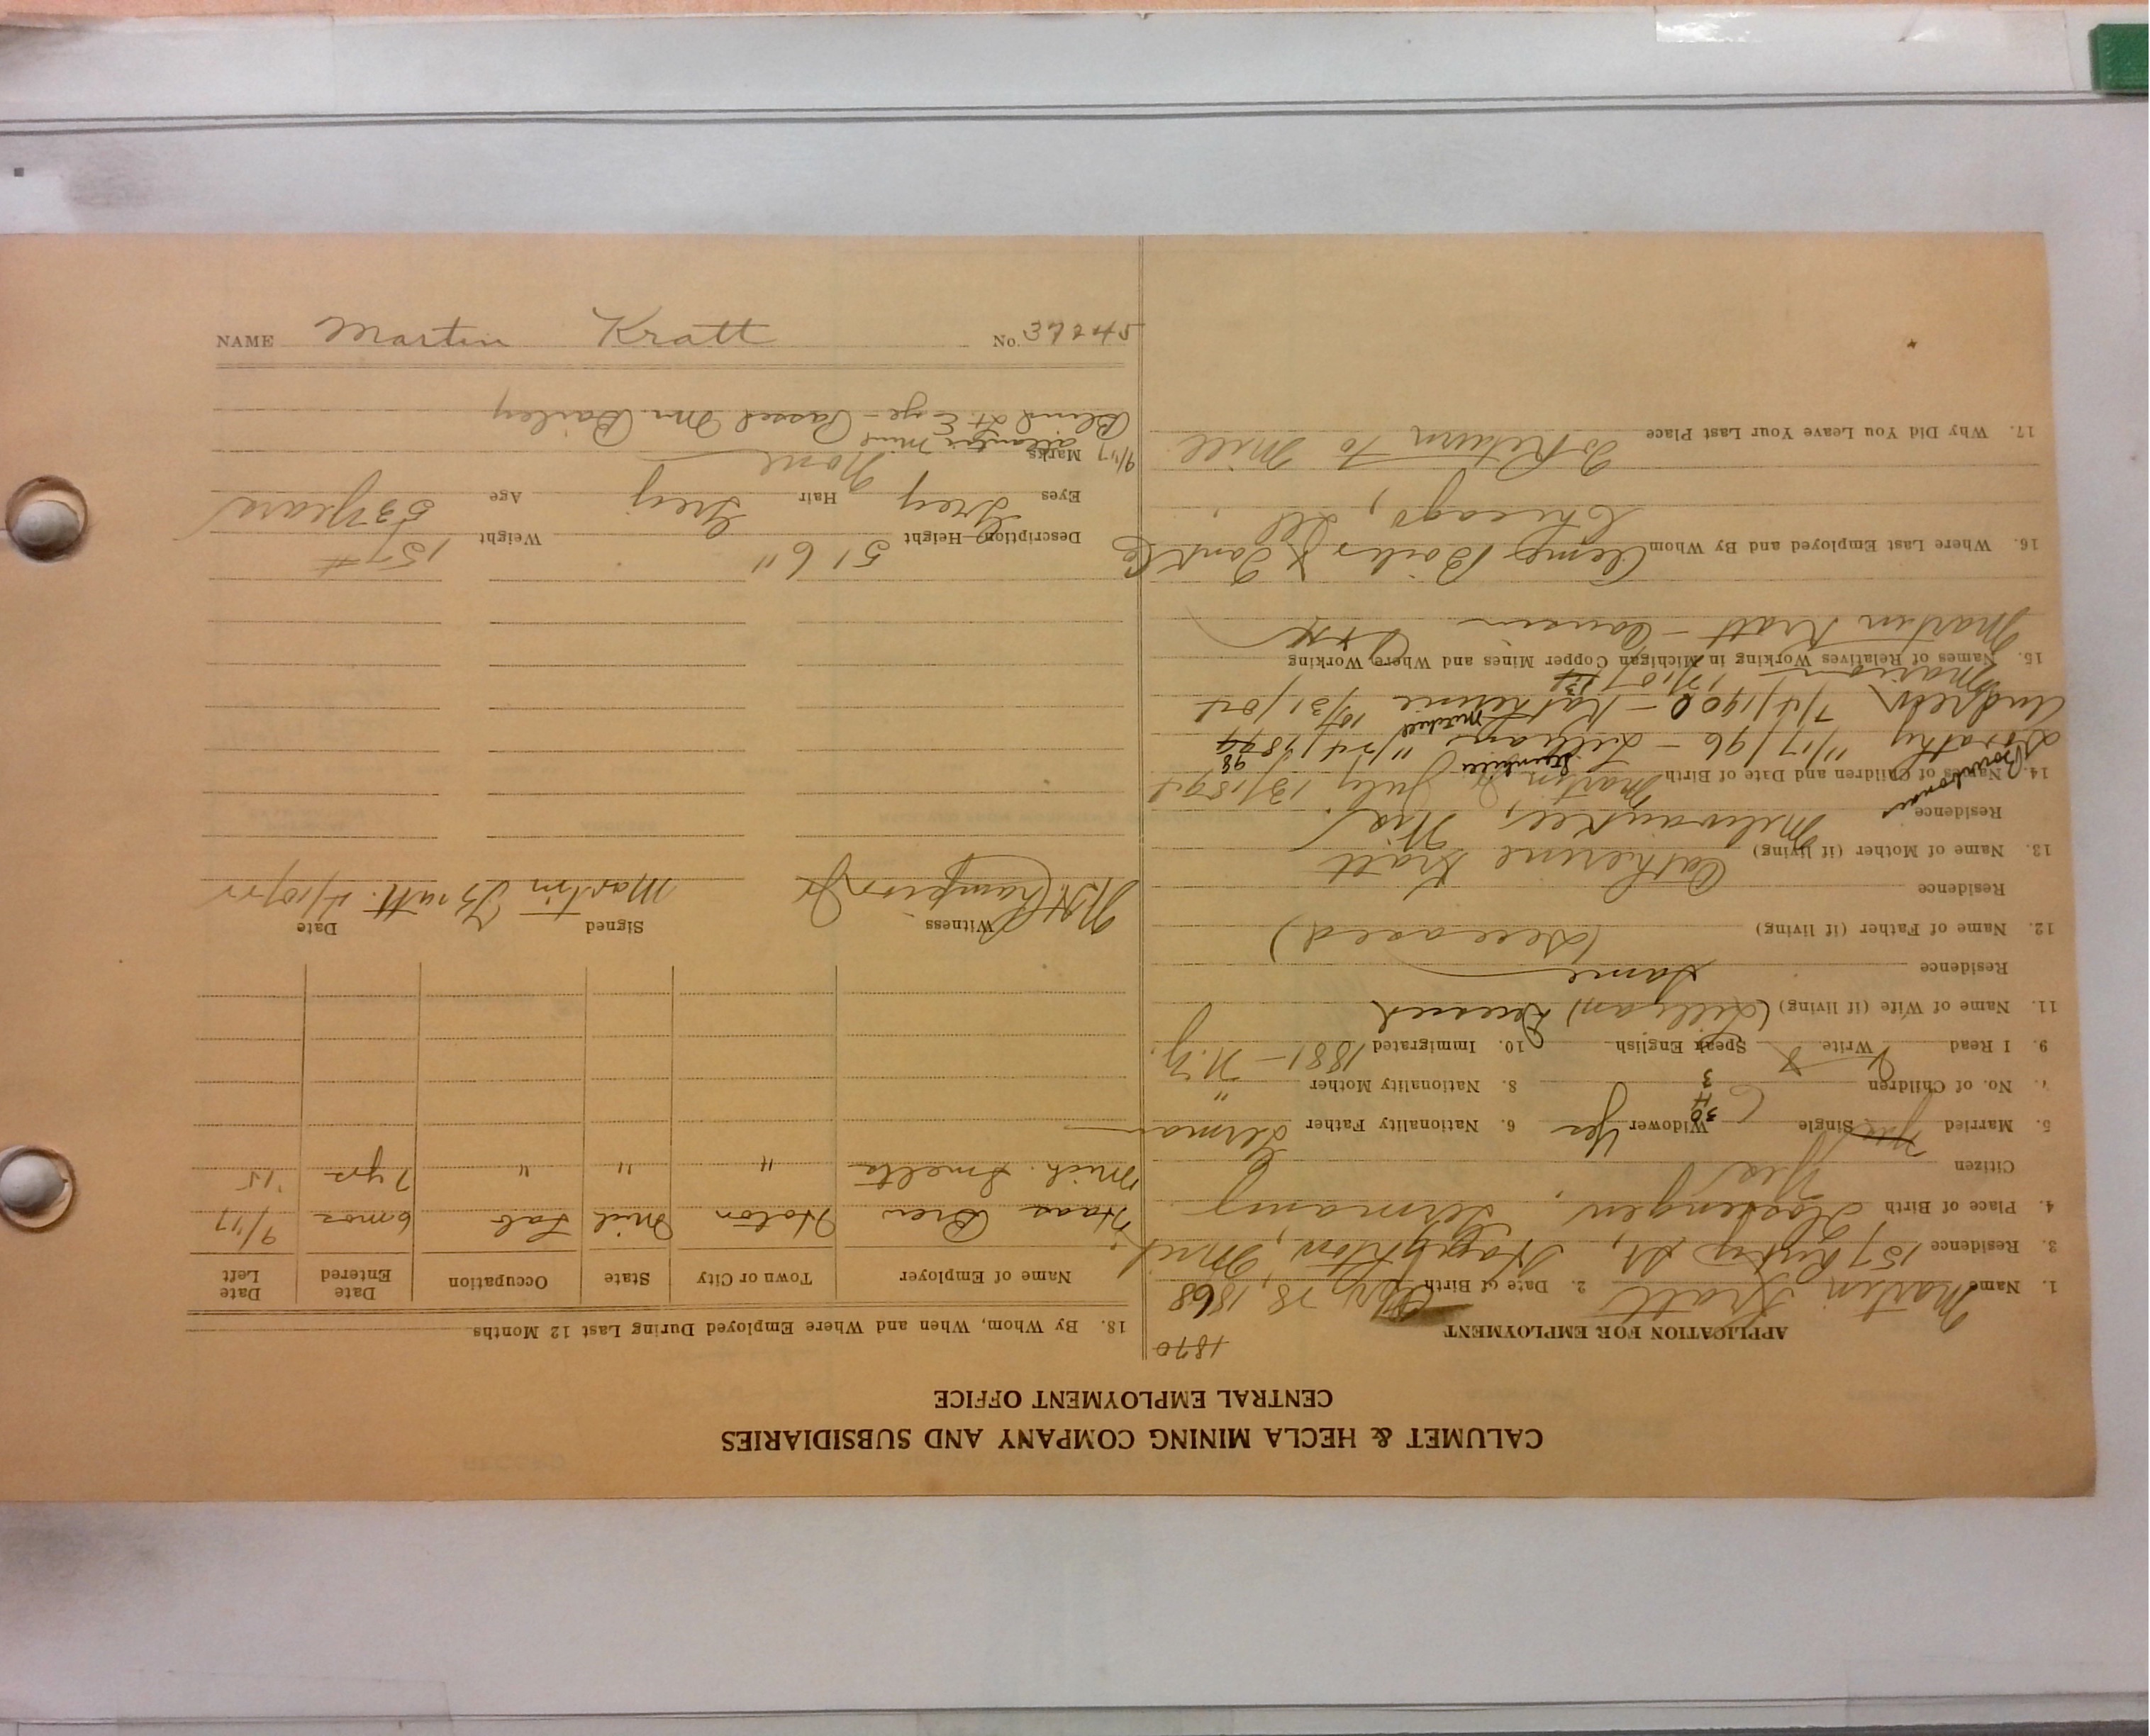 CALUMET & HECLA MINING COMPANY AND SUBSIDIARIES
CENTRAL EMPLOYMENT OFFICE
APPLICATION FOR EMPLOYMENT
1870
1. Name Martin Kratt 2. Date of Birth 28, 1868
3. Residence 157 St, Houghton, Mich.
4. Place of Birth Germany
Citizen Yes
5. Married Single Widower Yes 6. Nationality Father German
7. No. of Children 6 3 8. Nationality Mother "
9. I Read Write Speak English 10. Immigrated 1881 - N.Y.
11. Name of Wife (if living) (Lillian) Deceased
Residence Same
12. Name of Father (if living) (Deceased)
Residence
13. Name of Mother (if living) Catherine Kratt
Residence Milwaukee, Wis.
14. Names of Children and Date of Birth Martin July 13/1894
Dorathy 11/17/96 - Lillian 11/24/1899 98
Andrew 7/4/1900 - Katherine 10/31/04
Marion 12/10/
15. Names of Relatives Working in Michigan Copper Mines and Where Working
Martin Kratt - Cousin
16. Where Last Employed and By Whom Boiler & Tank Co
Chicago, Ill
17. Why Did You Leave Your Last Place To Return to Mill
18. By Whom, When and Where Employed During Last 12 Months
Name of Employer Town or City State Occupation Date Entered Date Left
Haas Brew Hoton Mich Lab 6 mos 9/17
Mich. Smelte " " " 7 yrs '15
Witness Signed Date
Martin Kratt.
Description Height 5' 6" Weight 157#
Eyes Grey Hair Grey Age 53 years
Marks None
9/17 Atlantic Mine
Blind Lt Eye - Passed Mr Bailey
NAME Martin Kratt No.